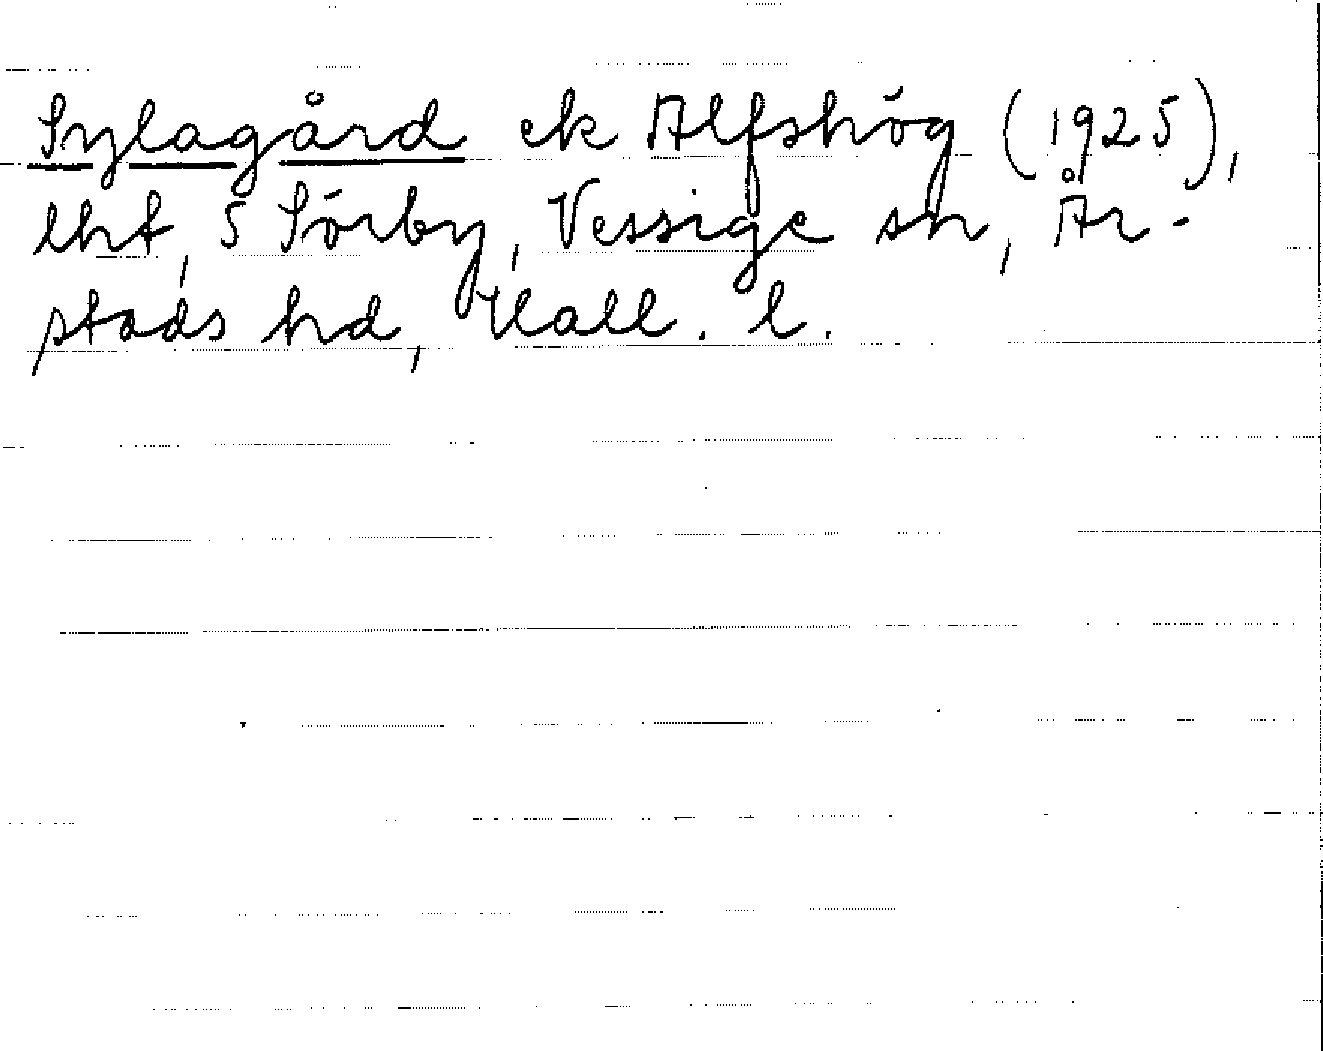 Sylagård ek Alfshög (1925),
lht, 5 Sörby, Vessige sn, År-
stads hd, Hall. l.